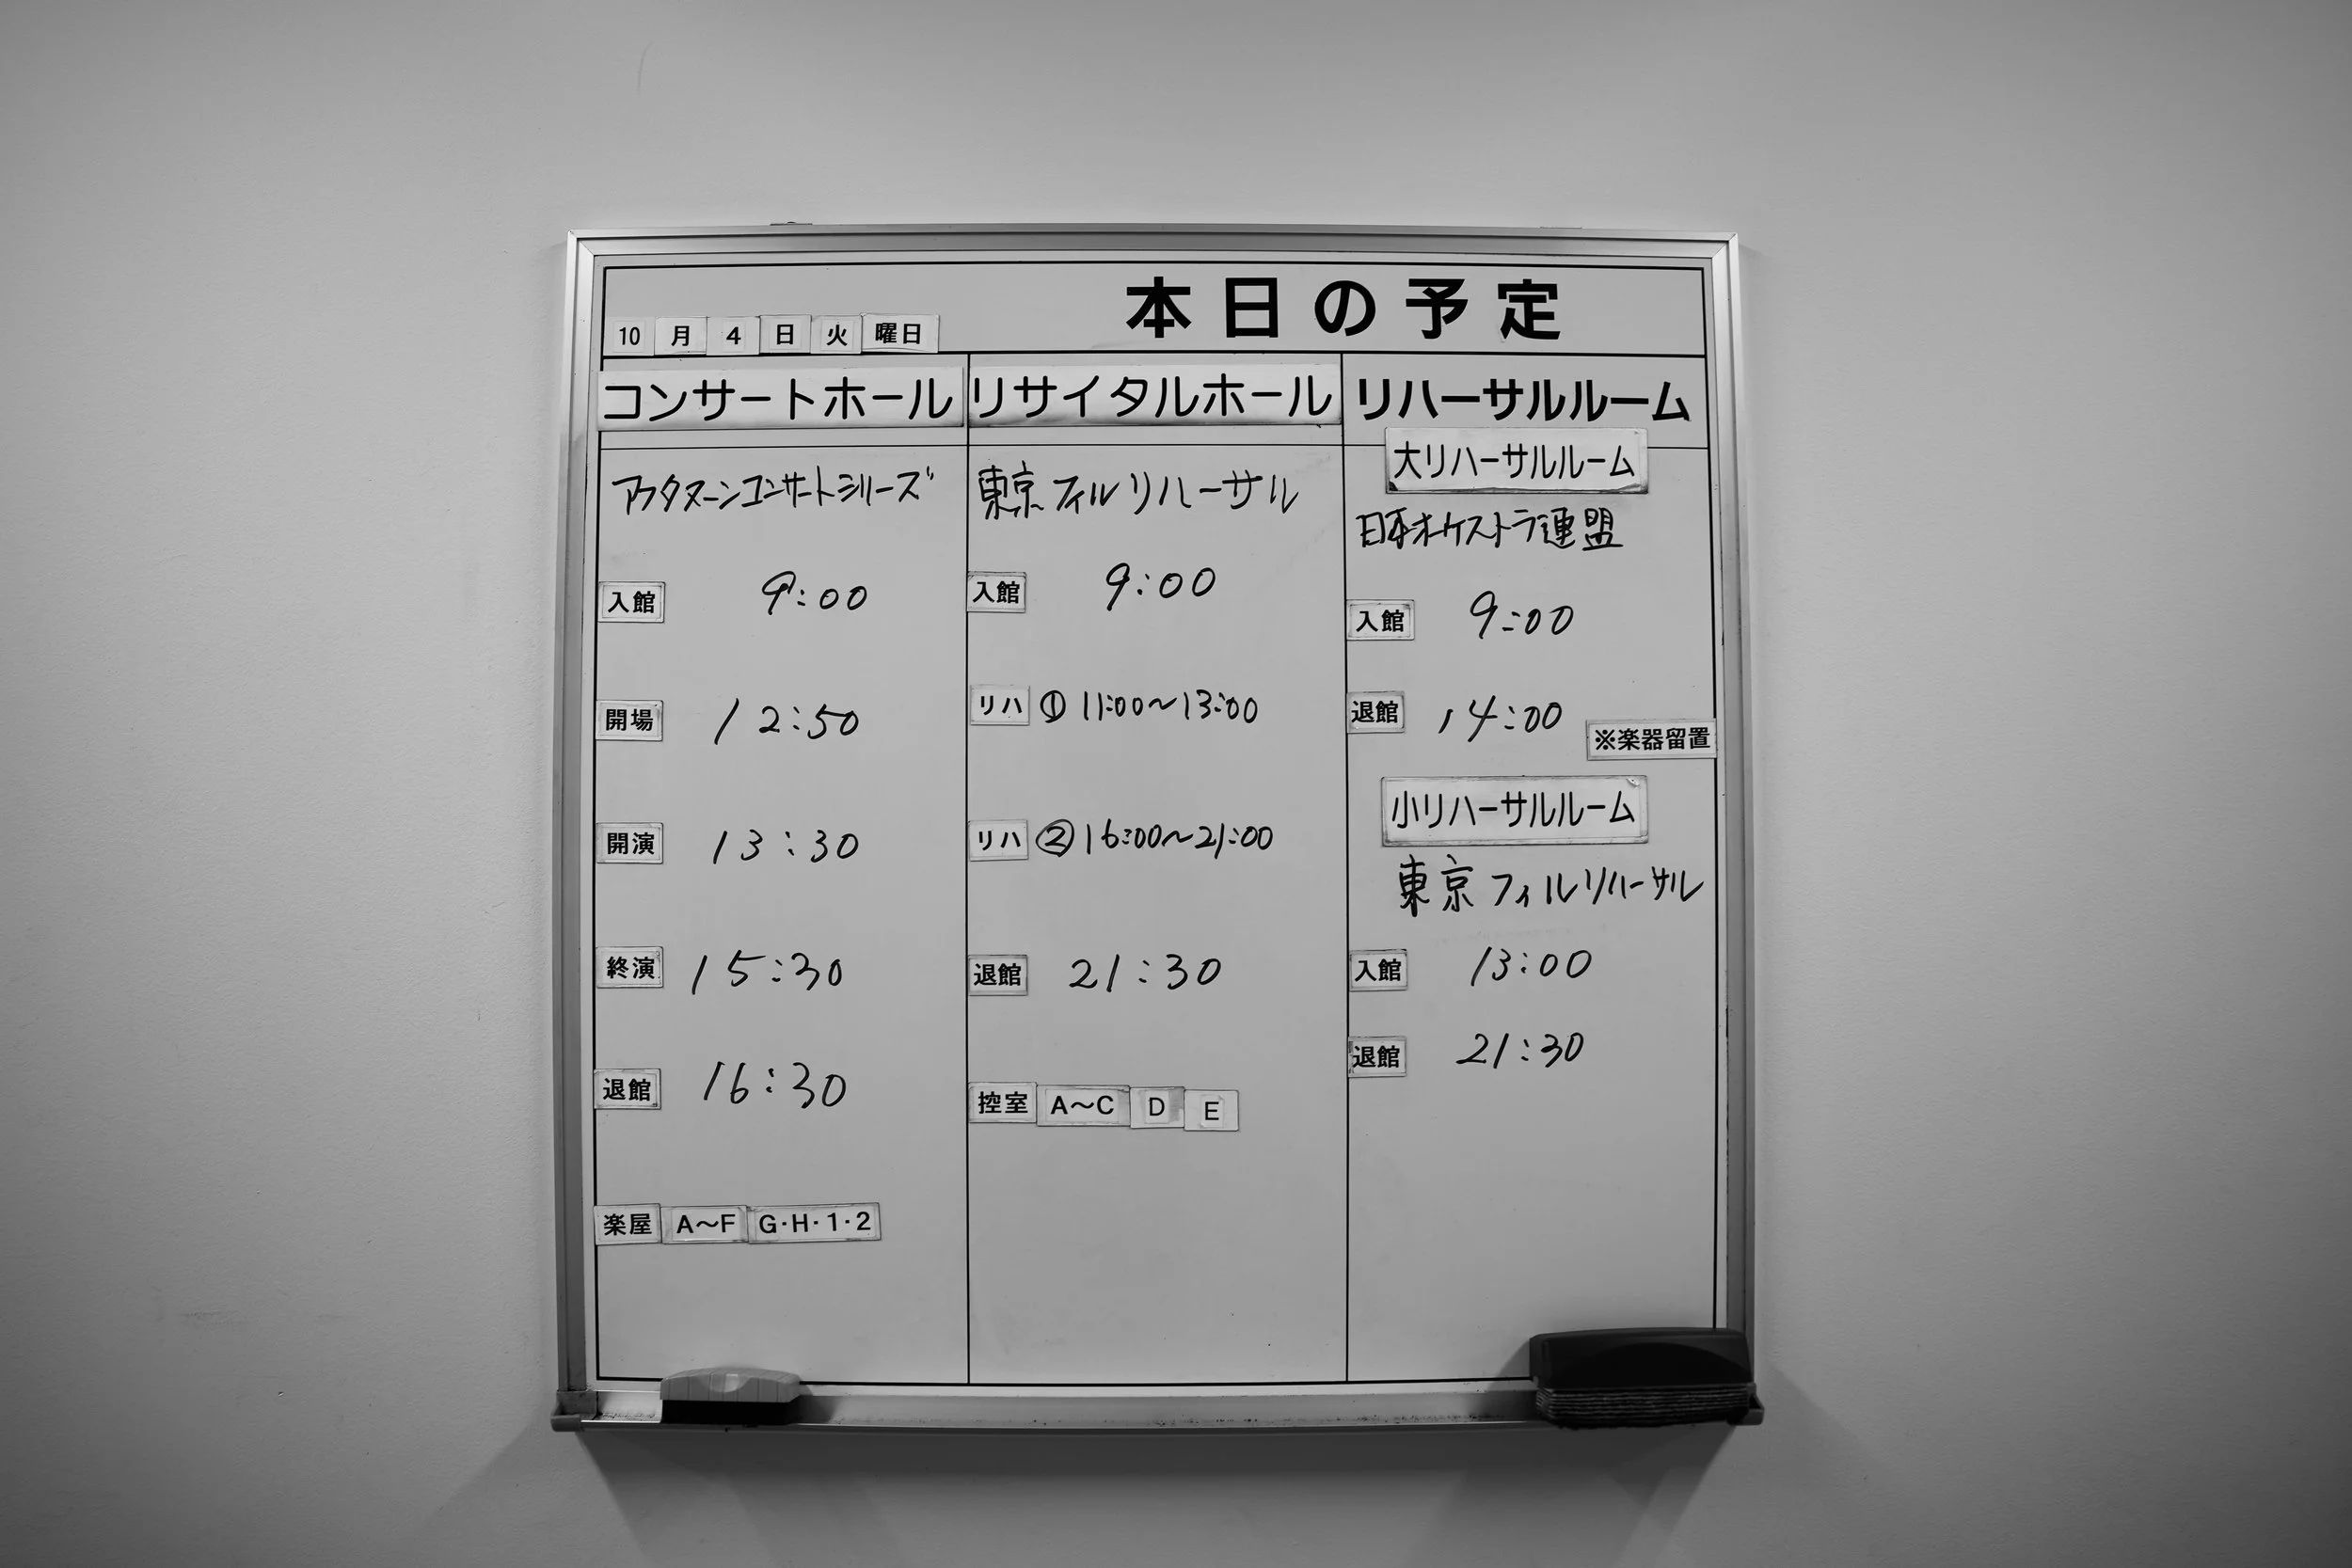 本日の予定
10月4日火曜日
コンサートホール
アフタヌーンコンサートシリーズ
入館 9:00
開場 12:50
開演 13:30
終演 15:30
退館 16:30
楽屋 A〜F G·H·1·2
リサイタルホール
東京フィルリハーサル
入館 9:00
リハ ① 11:00〜13:00
リハ ② 16:00〜21:00
退館 21:30
控室 A〜C D E
リハーサルルーム
大リハーサルルーム
日本オーケストラ連盟
入館 9:00
退館 14:00
※楽器留置
小リハーサルルーム
東京フィルリハーサル
入館 13:00
退館 21:30